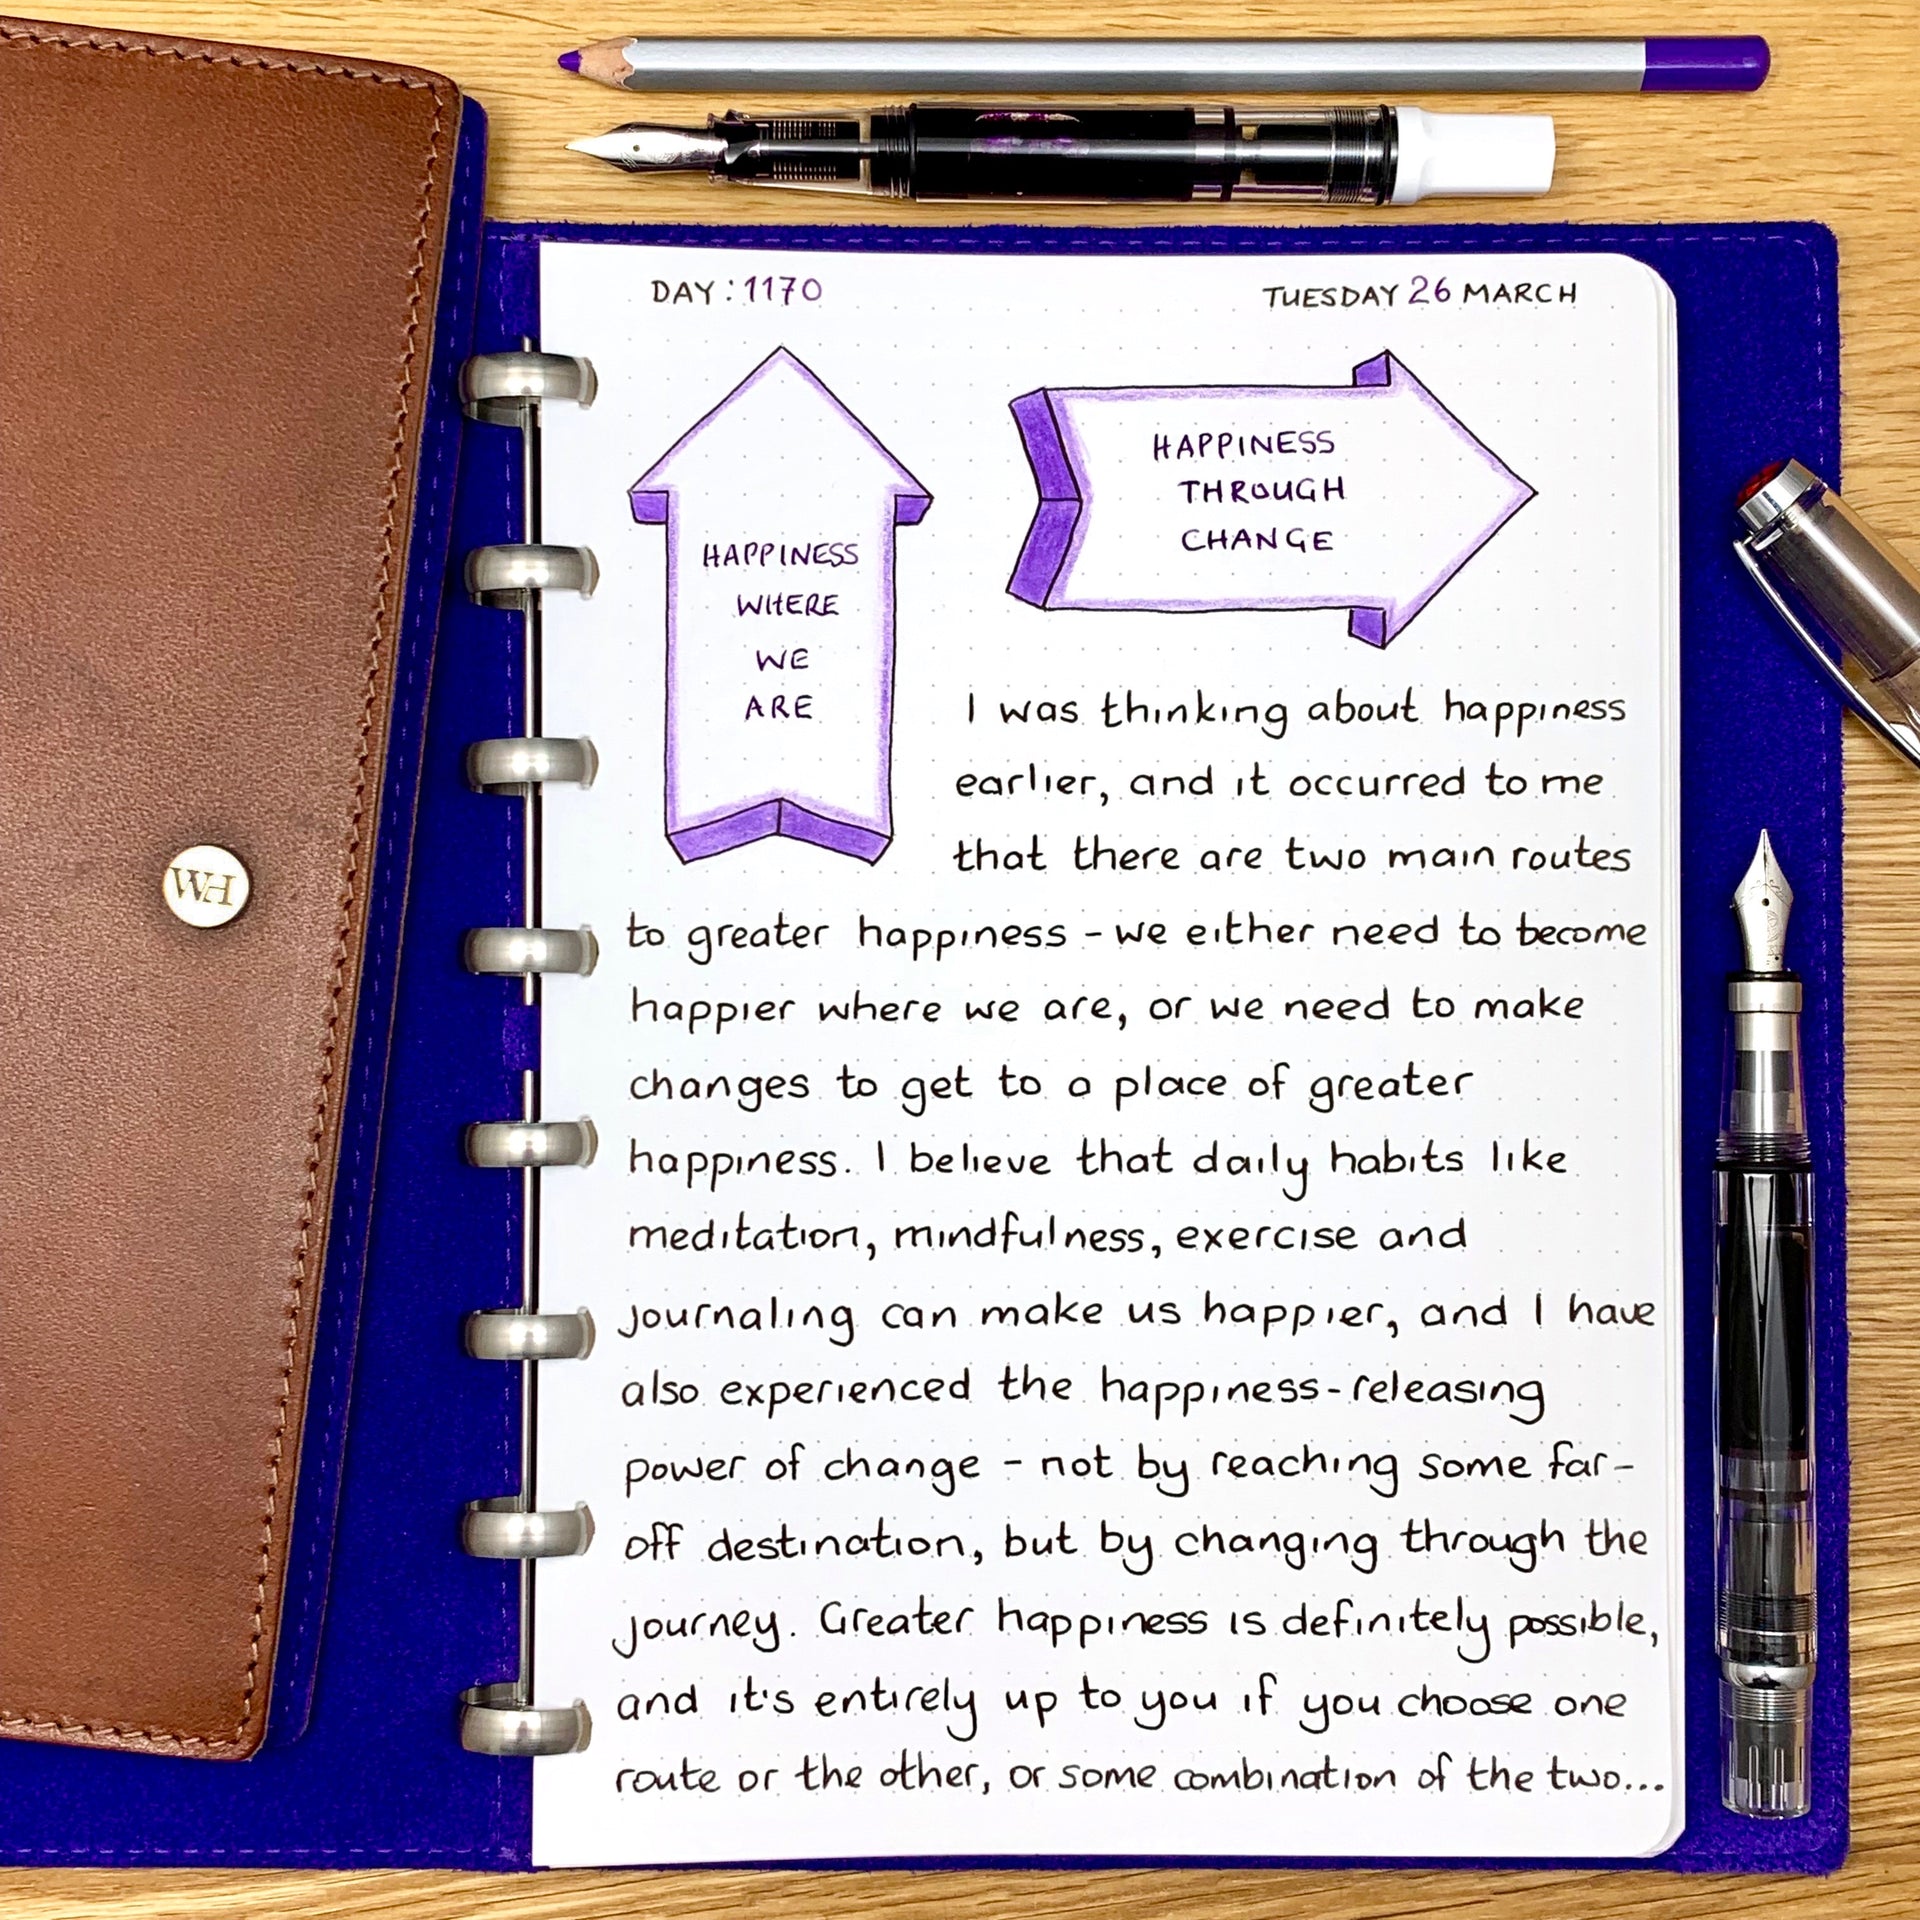 DAY: 1170
TUESDAY 26 MARCH
HAPPINESS
WHERE
WE
ARE
HAPPINESS
THROUGH
CHANGE
I was thinking about happiness
earlier, and it occurred to me
that there are two main routes
to greater happiness - we either need to become
happier where we are, or we need to make
changes to get to a place of greater
happiness. I believe that daily habits like
meditation, mindfulness, exercise and
journaling can make us happier, and I have
also experienced the happiness-releasing
power of change - not by reaching some far-
off destination, but by changing through the
journey. Greater happiness is definitely possible,
and it's entirely up to you if you choose one
route or the other, or some combination of the two...
WH